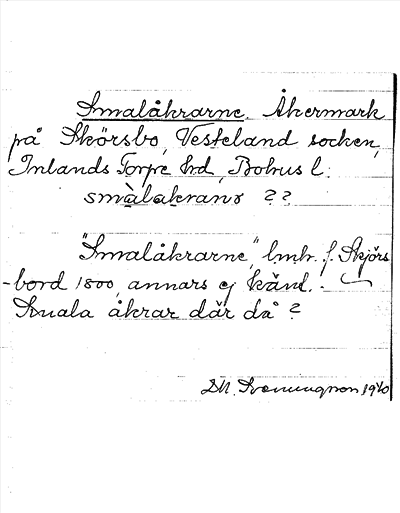 Smalåkrarne. Åkermark
på Skörsbo, Vesteland socken,
Inlands Torpe hrd, Bohus l.
smàlakranɤ ??
"Smalåkrarne", lmhr. f. Skjörs
-bord 1800, annars ej känt.
Smala åkrar där då?
1940